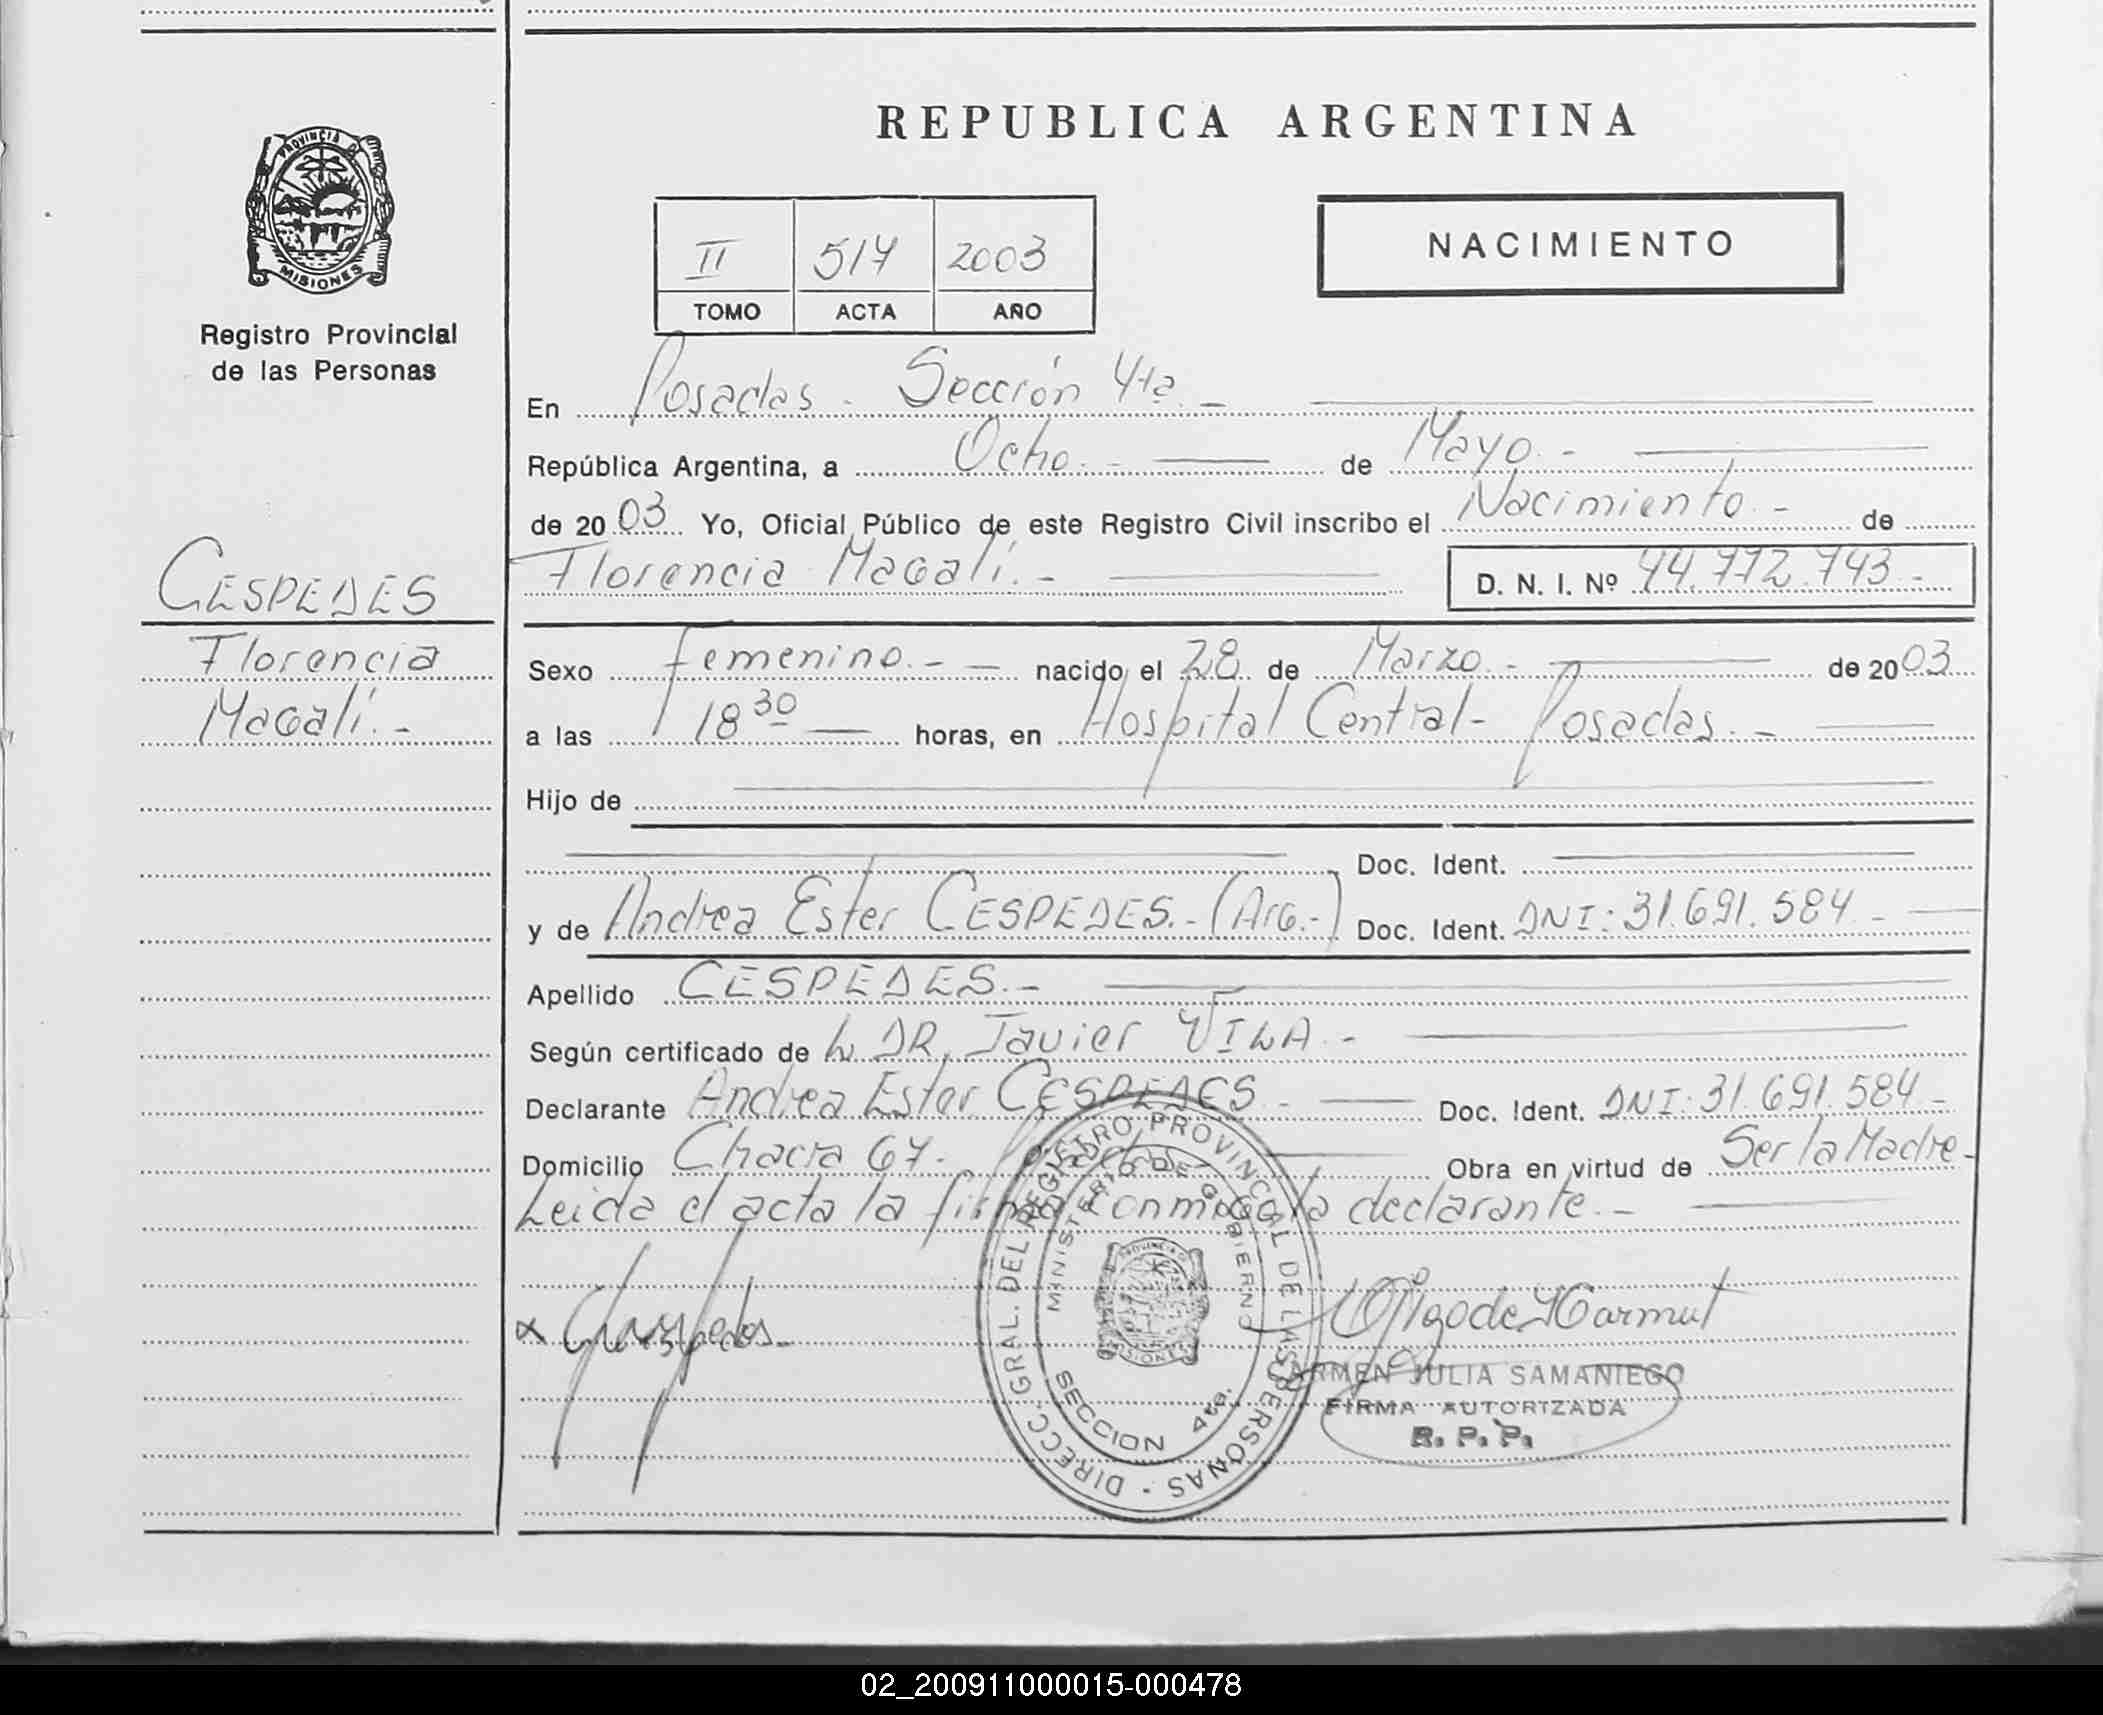 REPUBLICA ARGENTINA
PROVINCIA D MISIONES
Registro Provincial
de las Personas
II 517 2003
TOMO ACTA AÑO
NACIMIENTO
En Posadas - Sección 4ta.-
República Argentina, a Ocho.- de Mayo.-
de 2003 Yo, Oficial Público de este Registro Civil inscribo el Nacimiento.- de
Florencia Magalí.- D. N. I. Nº 44.772.743.-
CESPEDES
Florencia
Magalí.-
Sexo femenino.- nacido el 28 de Marzo.- de 2003
a las 18 30 horas, en Hospital Central- Posadas.-
Hijo de
Doc. Ident.
y de Andrea Ester CESPEDES.-(Arg.-) Doc. Ident. DNI: 31.691.584.-
Apellido CESPEDES.-
Según certificado de DR. Javier VILA.-
Declarante Andrea Ester CESPEDES.- Doc. Ident. DNI: 31.691.584.-
Domicilio Chacra 67.- Obra en virtud de Ser la Madre.-
Leida el acta la firma conmigo la declarante.-
DIRECC. GRAL. DEL REGISTRO PROVINCIAL DE LAS PERSONAS
MINISTERIO DE GOBIERNO
PROVINCIA D MISIONES
SECCION 4ta.
CARMEN JULIA SAMANIEGO
FIRMA AUTORIZADA
R. P. P.
02_200911000015-000478